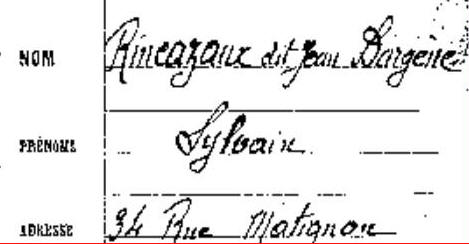 NOM Rincazaux dit Jean Dargène
PRÉNOMS Sylvain
ADRESSE 34 Rue Matignon